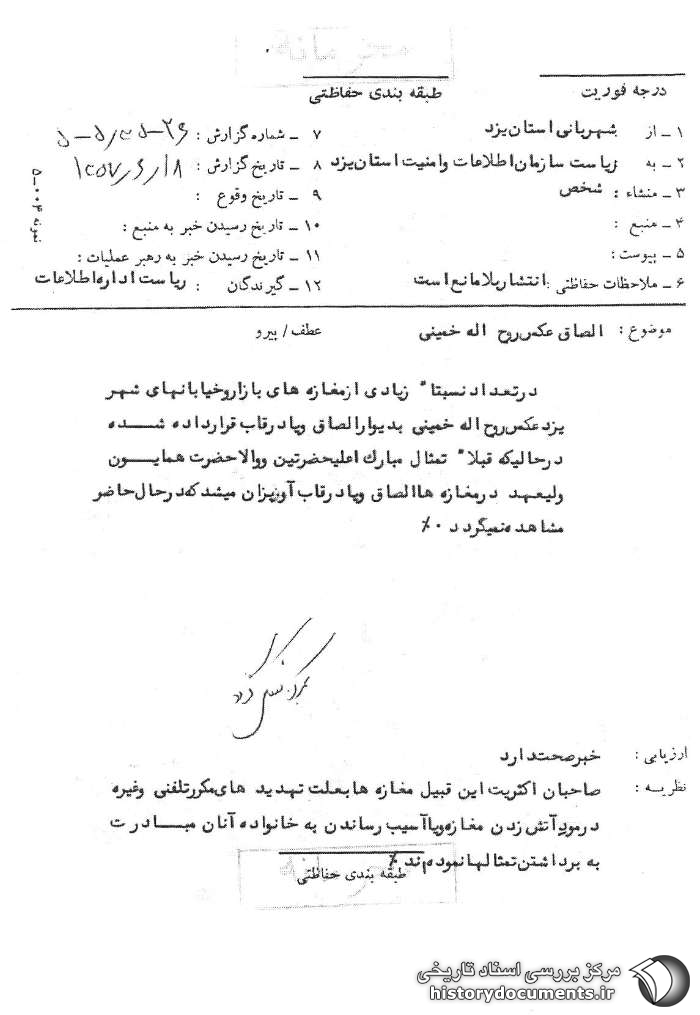 محرمانه
درجه فوریت
طبقه بندی حفاظتی
۱ ـ از شهربانی استان یزد
۲ ـ به ریاست سازمان اطلاعات وامنیت استان یزد
۳ ـ منشاء : شخص
۴ ـ منبع :
۵ ـ پیوست :
۶ ـ ملاحظات حفاظتی : انتشاربلامانع است
۷ ـ شماره گزارش :
۸ ـ تاریخ گزارش :
۹ ـ تاریخ وقوع :
۱۰ ـ تاریخ رسیدن خبر به منبع :
۱۱ ـ تاریخ رسیدن خبر به رهبر عملیات :
۱۲ ـ گیرندگان : ریاست اداره اطلاعات
نمونه ۰۰۴ـ۵
موضوع : الصاق عکس روح اله خمینی
عطف / پیرو
درتعداد نسبتا" زیادی ازمغازه های بازاروخیابانهای شهر
یزدعکس روح اله خمینی بدیوارالصاق ویادرقاب قرارداده شده
درحالیکه قبلا" تمثال مبارک اعلیحضرتین ووالاحضرت همایون
ولیعهد درمغازه هاالصاق ویادرقاب آویزان میشدکه درحال حاضر
مشاهده نمیگردد ۰٪
ارزیابی : خبرصحت دارد
نظریه : صاحبان اکثریت این قبیل مغازه هابعلت تهدید های مکررتلفنی وغیره
درموردآتش زدن مغازه ویاآسیب رساندن به خانواده آنان مبادرت
به برداشتن تمثالهانموده اند ٪
طبقه بندی حفاظتی
محرمانه
مرکز بررسی اسناد تاریخی
historydocuments.ir